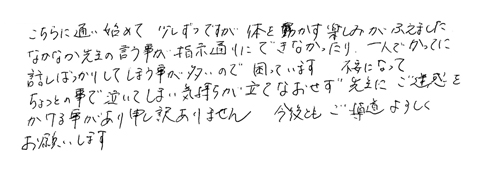 こちらに通い始めて 少しずつですが 体を動かす楽しみがふえました
なかなか先生の言う事が指示通りにできなかったり、一人でかってに
話しばっかりしてしまう事が多いので 困っています 不安になって
ちょっとの事で泣いてしまい気持ちが立てなおせず 先生に ご迷惑を
かける事があり申し訳ありません 今後とも ご指導よろしく
お願いします